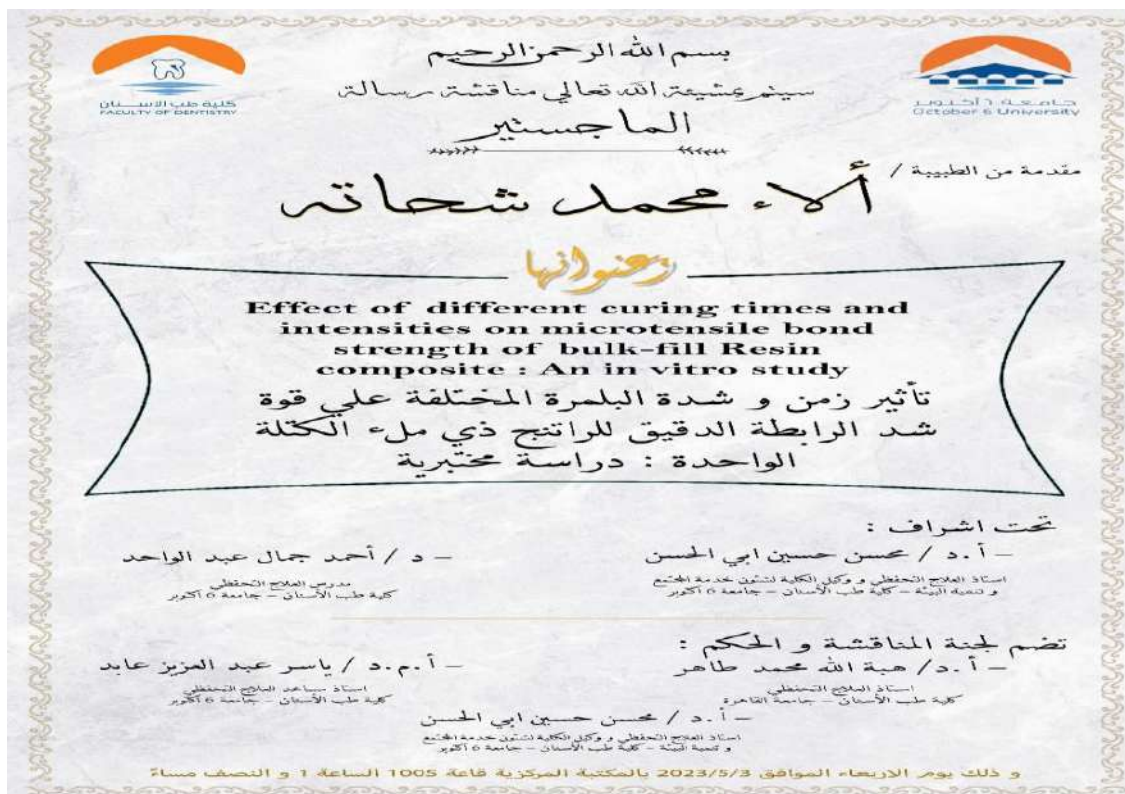 بسم الله الرحمن الرحيم
كلية طب الأسنان
FACULTY OF DENTISTRY
جامعة ٦ أكتوبر
October 6 University
سيتم بمشيئة الله تعالي مناقشة رسالة
الماجستير
مقدمة من الطبيبة /
ألاء محمد شحاته
وعنوانها
Effect of different curing times and
intensities on microtensile bond
strength of bulk-fill Resin
composite : An in vitro study
تأثير زمن و شدة البلمرة المختلفة علي قوة
شد الرابطة الدقيق للراتنج ذي ملء الكتلة
الواحدة : دراسة مختبرية
تحت اشراف :
- أ.د / محسن حسين ابي الحسن
استاذ العلاج التحفظي و وكيل الكلية لشئون خدمة المجتمع
و تنمية البيئة - كلية طب الأسنان - جامعة 6 أكتوبر
- د / أحمد جمال عبد الواحد
مدرس العلاج التحفظي
كلية طب الأسنان - جامعة 6 أكتوبر
تضم لجنة المناقشة و الحكم :
- أ.د/ هبة الله محمد طاهر
استاذ العلاج التحفظي
كلية طب الأسنان - جامعة القاهرة
- أ.م.د / ياسر عبد العزيز عابد
استاذ مساعد العلاج التحفظي
كلية طب الأسنان - جامعة 6 أكتوبر
- أ.د / محسن حسين ابي الحسن
استاذ العلاج التحفظي و وكيل الكلية لشئون خدمة المجتمع
و تنمية البيئة - كلية طب الأسنان - جامعة 6 أكتوبر
و ذلك يوم الاربعاء الموافق 2023/5/3 بالمكتبة المركزية قاعة 1005 الساعة 1 و النصف مساءً